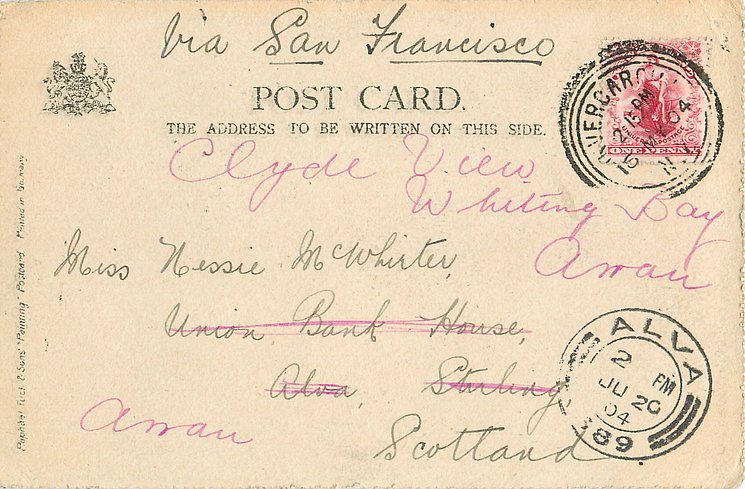 Via San Francisco
POST CARD.
THE ADDRESS TO BE WRITTEN ON THIS SIDE.
INVERCARGILL
2.15 PM
16 MY 04
N.Z
UNIVERSAL POSTAGE
ONE PENNY
Clyde View
Whiting Bay
Arran
Miss Nessie McWhirter,
Union Bank House,
Alva, Stirling
Arran
Scotland
ALVA
2 PM
JU 20
04
389
Raphael Tuck & Sons' "Painting" Postcard Printed in Germany